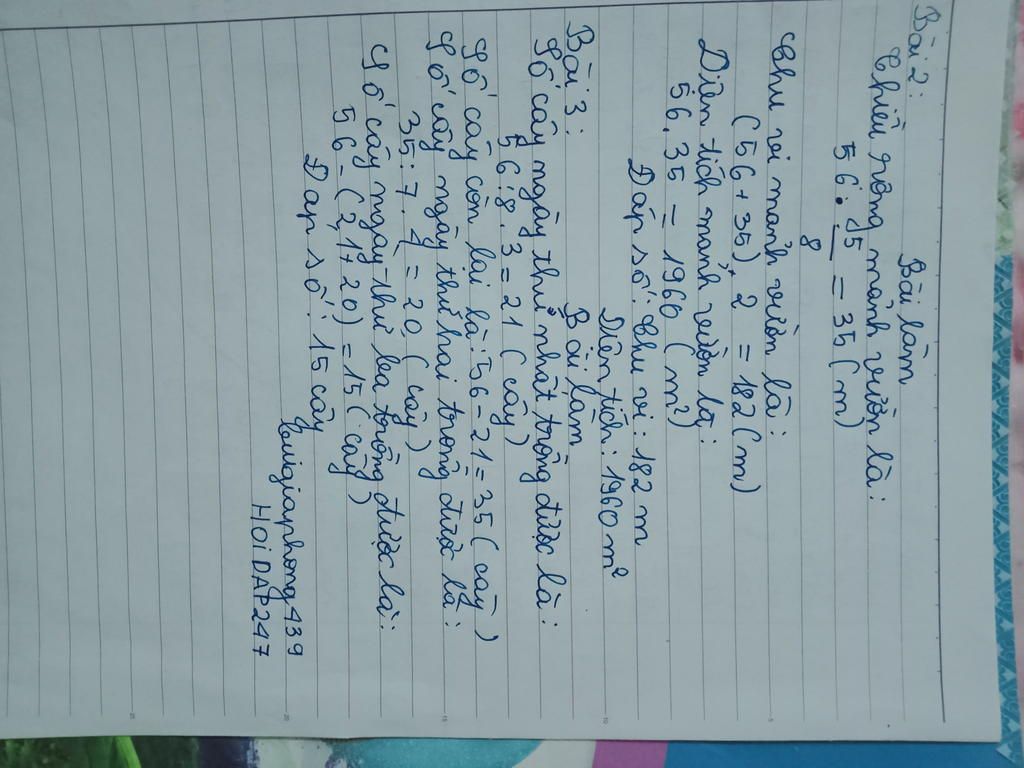 Bài 2:
Bài làm
Chiều rộng mảnh vườn là:
56 : 15/8 = 35 (m)
Chu vi mảnh vườn là:
(56 + 35). 2 = 182 (m)
Diện tích mảnh vườn là:
56. 35 = 1960 (m²)
Đáp số: Chu vi: 182 m
Diện tích: 1960 m²
Bài 3:
Bài làm
Số cây ngày thứ nhất trồng được là:
56:8. 3 = 21 (cây)
Số cây còn lại là: 56 - 21 = 35 (cây)
Số cây ngày thứ hai trồng được là:
35: 7. 4 = 20 (cây)
Số cây ngày thứ ba trồng được là:
56 - (21+20) = 15 (cây)
Đáp số: 15 cây
HOIDAP247